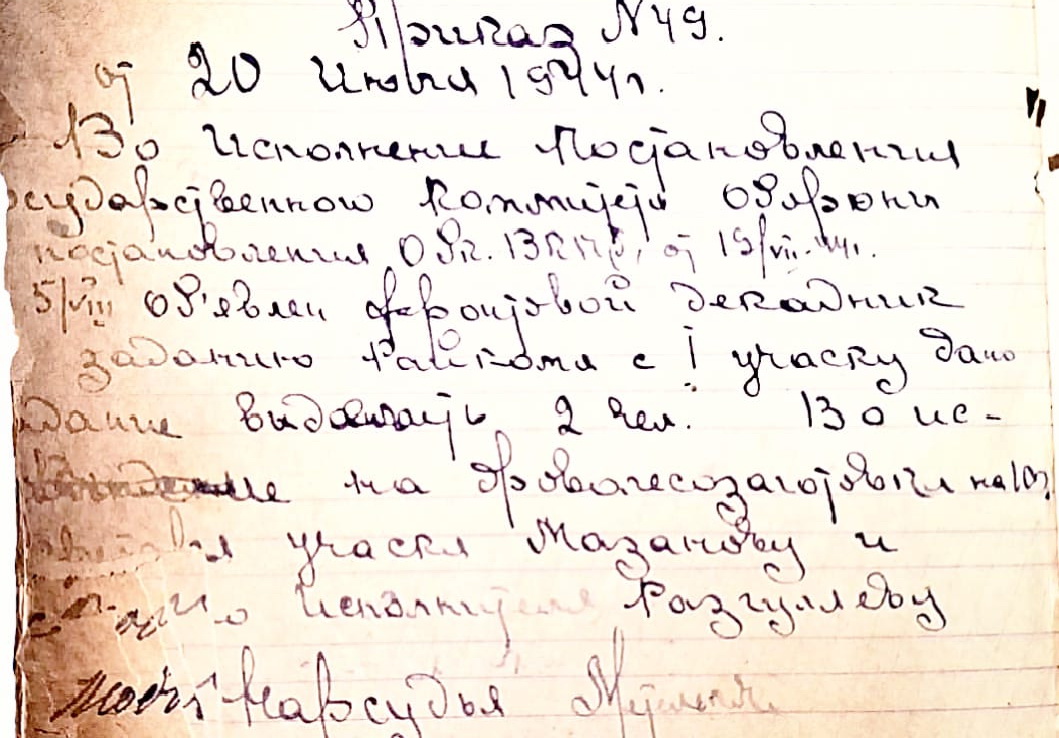 Приказ N 49.
от 20 Июля 1944 г.
Во исполнение Постановления
сударственного Коммитета Обароны
постановления ОБк. ВКПб, от 19/VII-44г.
5/VIII об'явлен фронтовой декадник
заданию Райкома с 1 участку дано
дание выдать 2 чел. Во ис-
на дроволесозаготовки на 10
участка Мазанову и
Исполнителя Разгуляеву
Нарсудья